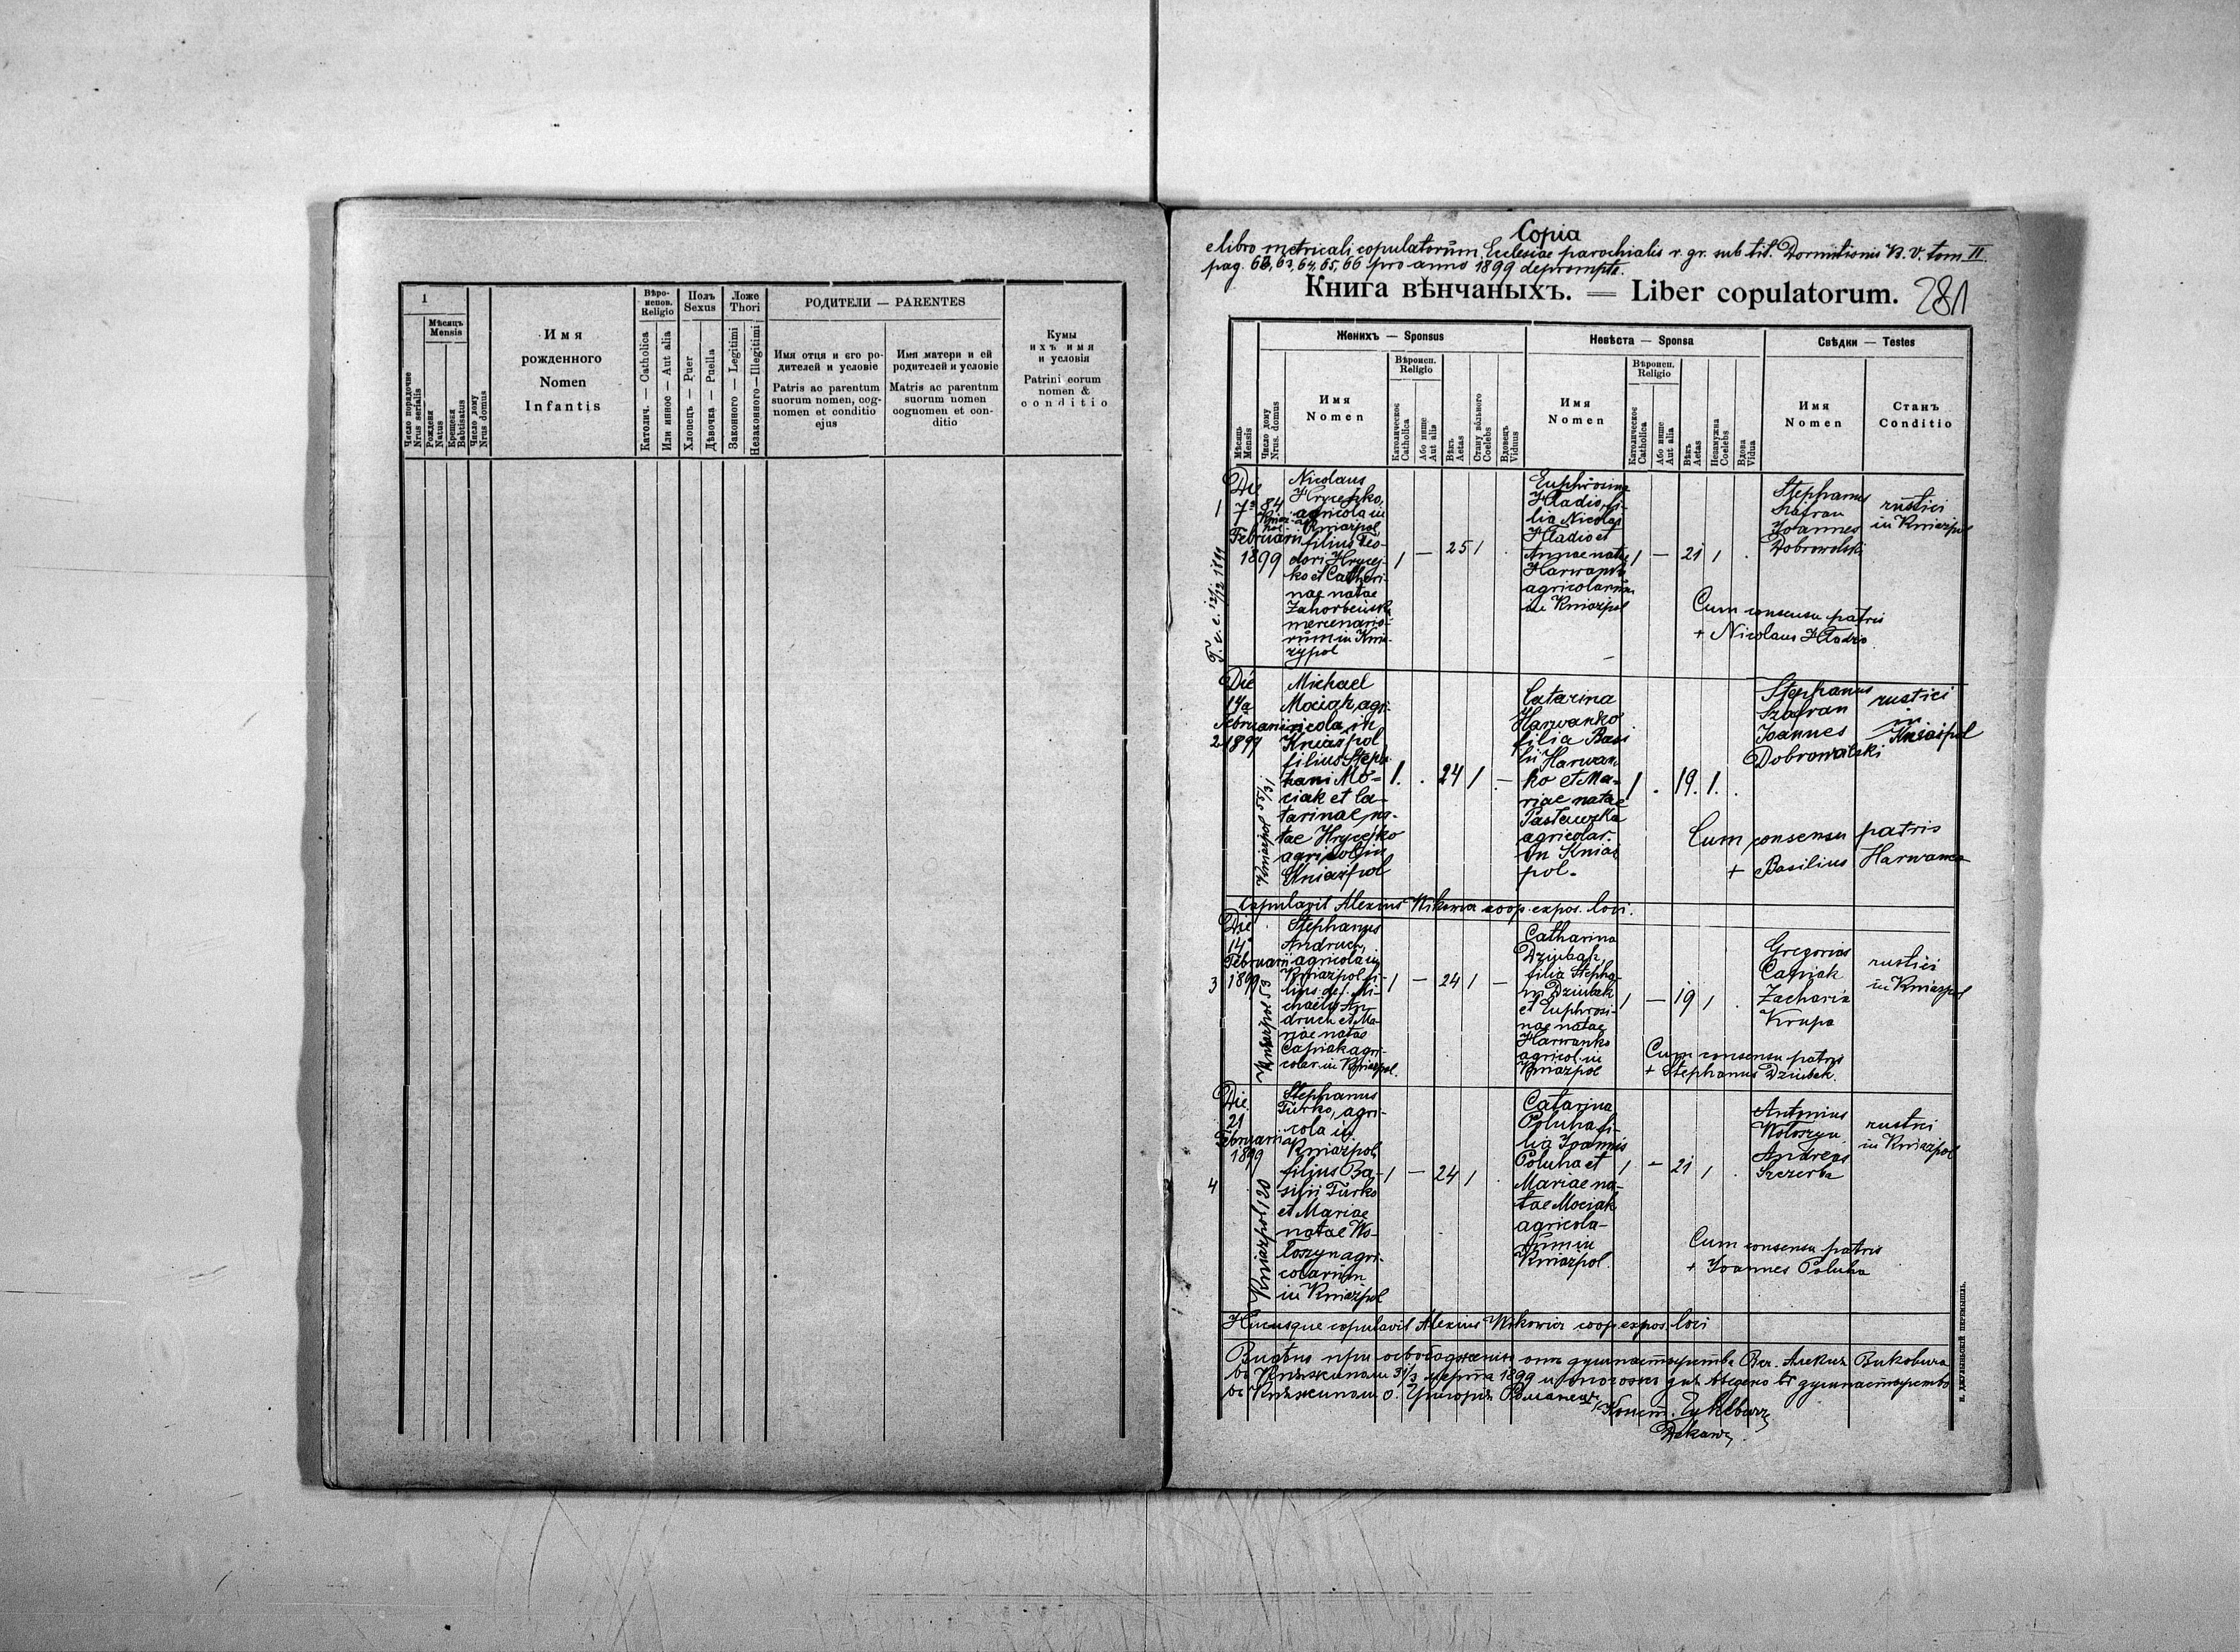 1
Мѣсяцъ
Mensis
Число порядочне
Nrus serialis
Рождення
Natus
Крещеня
Babtisatus
Число дому
Nrus domus
Имя
рожденного
Nomen
Infantis
Вѣро-
испов.
Religio
Католич. — Catholica
Или инное — Aut alia
Полъ
Sexus
Хлопецъ — Puer
Дѣвочка — Puella
Ложе
Thori
Законного — Legitimi
Незаконного — Illegitimi
РОДИТЕЛИ — PARENTES
Имя отця и єго ро-
дителей и условіе
Patris ac parentum
suorum nomen, cog-
nomen et conditio
ejus
Имя матери и ей
родителей и условіе
Matris ac parentum
suorum nomen
cognomen et con-
ditio
Кумы
ихъ имя
и условія
Patrini eorum
nomen &
conditio
Copia
e libro metricali copulatorum Ecclesiae parochialis r. gr. sub tit. Dormitionis B. V. tom II.
pag. 62, 63, 64, 65, 66 pro anno 1899 deprompta.
Книга вѣнчаныхъ. — Liber copulatorum.
281
Женихъ — Sponsus
Невѣста — Sponsa
Свѣдки — Testes
Мѣсяць
Mensis
Число дому
Nrus. domus
Имя
Nomen
Вѣроисп.
Religio
Католическое
Catholica
Або нише
Aut alia
Вѣкъ
Aetas
Стану вôльного
Coelebs
Вдовець
Viduus
Имя
Nomen
Вѣроисп.
Religio
Католическое
Catholica
Або нише
Aut alia
Вѣкъ
Aetas
Незамужна
Coelebs
Вдова
Vidua
Имя
Nomen
Станъ
Conditio
1
Die
7a
Februarii
1899
84
Nicolaus
Hrycejko,
agricola in
Kniażpol
filius Teo-
dori Hrycej-
ko et Cathari-
nae natae
Zahorbeńska
mercenario-
rum in Knia-
żypol
1 — 25 1
Euphrosina
Hladio, fi-
lia Nicolai
Hladio et
Annae natae
Harwanko
agricolarum
in Kniażpol
1 — 21 1
Stephanus
Szafran
Joannes
Dobrowolski
rustici
in Kniażpol
Cum consensu patris
+ Nicolaus Hladio
2
Die
14a
Februarii
1899
Kniażpol 55/31
Michael
Mociak, agri-
cola in
Kniażpol
filius Steph
hani Mo-
ciak et Ca-
tarinae na-
tae Hrycejko
agricol. in
Kniażpol
1. . 24 1 —
Catarina
Harwanko
filia Basi
lii Harwan
ko et Ma-
riae natae
agricolar.
in Kniaż
pol.
1 . 19. 1.
Stephanus
Szafran
Joannes
Dobrowolski
rustici
in
Kniażpol
Cum consensu patris
+ Basilius Harwanko
Copulavit Alexius Wikowicz coop. expos. loci.
3
Die
14
Februarii
1899
Kniażpol 53
Stephanus
Andruch,
agricola in
Kniażpol fi-
lius def. Mi-
chaelis An-
druch et Ma-
riae natae
Capiak agri-
colar. in Kniażpol.
1 — 24 1 —
Catharina
Dziubak,
filia Stepha-
ni Dziubak
et Euphrosi-
nae natae
Harwanko
agricol. in
Kniażpol
1 — 19 1
Gregorius
Capiak
Zacharia
Krupa
rustici
in Kniażpol
Cum consensu patris
+ Stephanus Dziubak.
4
Die
21
Februarii
1899
Kniażpol 120
Stephanus
Turko, agri-
cola in
Kniażpol
filius Ba-
silii Turko
et Mariae
natae Wo-
łoszyn agri-
colarum
in Kniażpol
1 — 24 1
Catarina
Poluha fi-
lia Joannis
Poluha et
Mariae na-
tae Mociak
agricola-
rum in
Kniażpol.
1 — 21 1
Antonius
Wołoszyn
Andreas
Szczerba
rustici
in Kniażpol
Cum consensu patris
+ Joannes Poluha
Hucusque copulavit Alexius Wikowicz coop. expos. loci
Видѣно при освобожденію отъ душпастырства Алексія Виковича
въ Княжиполи 31/3 марта 1899 и того-жъ дня введено въ душпастырство
въ Княжиполи о. Григорія Романець
Деканъ